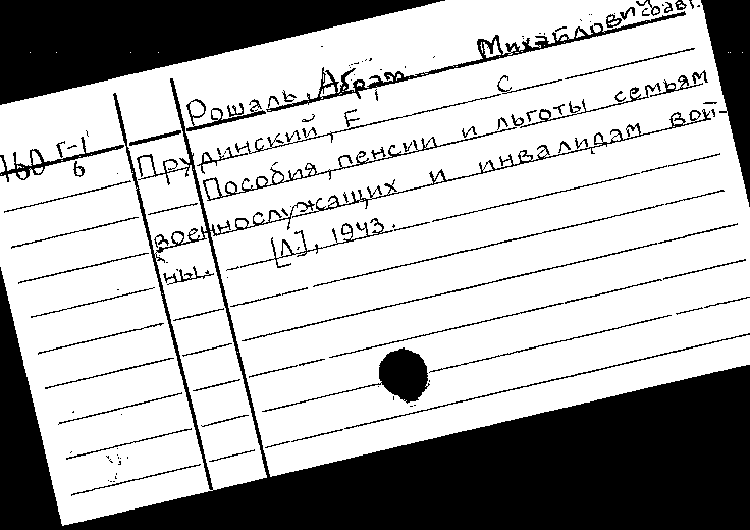 Рошаль, Абрам Михайлович соавт.
160 г-1
6
Прудинский, Е. С
Пособия, пенсии и льготы семьям
военнослужащих и инвалидам вой-
ны. [Л.], 1943.